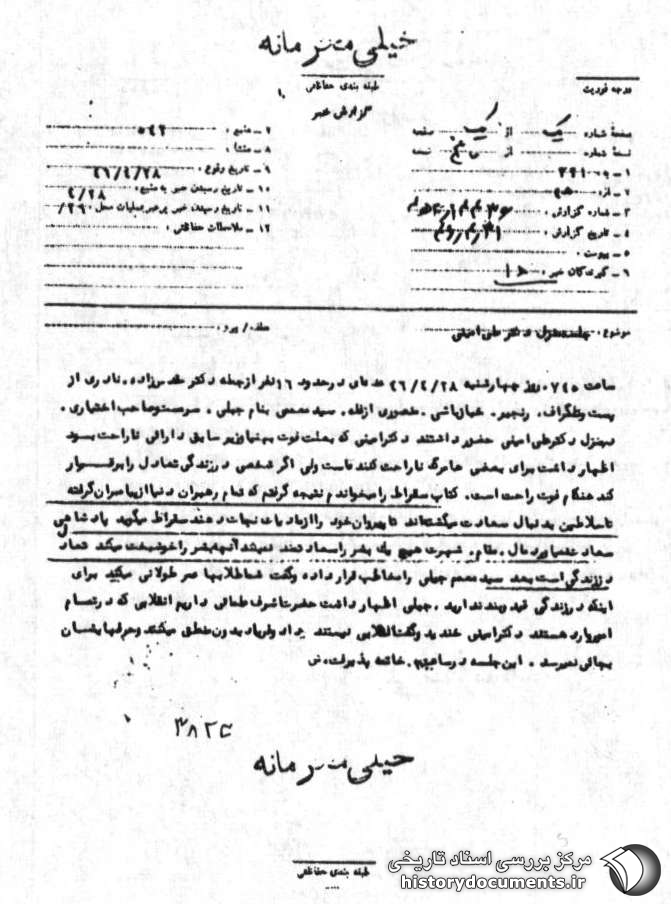 خیلی محرمانه
طبقه بندی حفاظتی
درجه فوریت
گزارش خبر
صفحه شماره یک از یک صفحه
نسخه شماره از پنج نسخه
۱ - به ۳۴۱
۲ - از
۳ - شماره گزارش
۴ - تاریخ گزارش
۵ - پیوست
۶ - گیرندگان خبر
۷ - منبع
۸ - منشأ
۹ - تاریخ وقوع ۴۶/۴/۲۸
۱۰ - تاریخ رسیدن خبر به منبع ۴/۲۸
۱۱ - تاریخ رسیدن خبر به رهبر عملیات محل
۱۲ - ملاحظات حفاظتی
موضوع: جلسه منزل دکتر علی امینی
عطف / پیرو
ساعت ۷۴۵ روز چهارشنبه ۴۶/۴/۲۸ عده‌ای در حدود ۱۶ نفر از جمله دکتر نادری از
پست و تلگراف، رنجبر، خبازباشی، منصوری سید معمم بنام جبلی، صاحب اختیاری،
در منزل دکتر علی امینی حضور داشتند دکتر امینی که بعلت فوت وزیر سابق دارائی ناراحت بود
اظهار داشت برای بعضی‌ها مرگ ناراحت کننده است ولی اگر شخصی در زندگی تعادل را برقرار
کند هنگام فوت راحت است. کتاب سقراط را میخواندم نتیجه گرفتم که تمام رهبران دنیا از پیامبران گرفته
تا سلاطین بدنبال سعادت میگشته‌اند تا پیروان خود را از بدبختی نجات دهند سقراط میگوید پادشاهی
سعادت نمیآورد مال، مقام، شهرت هیچ یک بشر را سعادتمند نمیکند آنچه بشر را خوشبخت میکند تعادل
در زندگی است بعد سید معمم جبلی را مخاطب قرار داده و گفت شما طلبه‌ها عمر طولانی میکنید برای
اینکه در زندگی قید و بند ندارید. جبلی اظهار داشت حضرت اشرف علمائی داریم انقلابی که در تمام
امور وارد هستند دکتر امینی خندید و گفت انقلابی نیستند داد و فریاد بدون منطق میکنند و حرفهایشان
بجائی نمیرسد. این جلسه در ساعت خاتمه پذیرفت.
خیلی محرمانه
طبقه بندی حفاظتی
مرکز بررسی اسناد تاریخی
historydocuments.ir